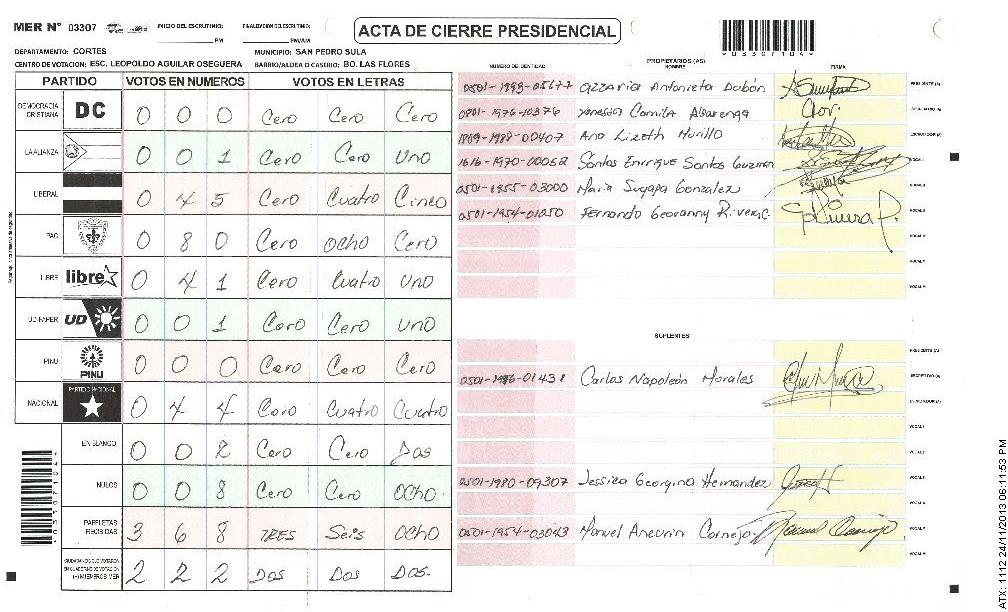 MER N° 03307 INICIO DEL ESCRUTINIO: PM FINALIZACION DEL ESCRUTINIO: PM/AM
ACTA DE CIERRE PRESIDENCIAL
DEPARTAMENTO: CORTES MUNICIPIO: SAN PEDRO SULA
CENTRO DE VOTACION: ESC. LEOPOLDO AGUILAR OSEGUERA BARRIO/ALDEA O CASERIO: BO. LAS FLORES
PARTIDO VOTOS EN NUMEROS VOTOS EN LETRAS
DEMOCRACIA CRISTIANA DC 0 0 0 Cero Cero Cero
LA ALIANZA 0 0 1 Cero Cero Uno
LIBERAL 0 4 5 Cero Cuatro Cinco
PAC 0 8 0 Cero Ocho Cero
LIBRE libre 0 4 1 Cero Cuatro Uno
UD/FAPER UD 0 0 1 Cero Cero Uno
PINU PINU 0 0 0 Cero Cero Cero
NACIONAL PARTIDO NACIONAL 0 4 4 Cero Cuatro Cuatro
EN BLANCO 0 0 2 Cero Cero Dos
NULOS 0 0 8 Cero Cero Ocho
PAPELETAS RECIBIDAS 3 6 8 TRES Seis Ocho
CIUDADANOS QUE VOTARON EN CUADERNO DE VOTACION (+) MIEMBROS MER 2 2 2 Dos Dos Dos.
PROPIETARIOS (AS)
NUMERO DE IDENTIDAD NOMBRE FIRMA
0501-1999-05677 Azzaria Antonieta Dubón PRESIDENTE (A)
0801-1976-10376 Yanessa Camila Alvarenga SECRETARIO (A)
1809-1988-00407 Ana Lizeth Murillo ESCRUTADOR (A)
1616-1970-00052 Santos Enerrique Santos Guzman VOCAL I
0501-1955-03000 Maria Suyapa Gonzalez VOCAL II
0501-1954-01250 Fernando Geovanny Rivera C. VOCAL III
SUPLENTES
PRESIDENTE (A)
0501-1986-01431 Carlos Napoleón Morales SECRETARIO (A)
ESCRUTADOR (A)
0501-1980-09307 Jessica Georgina Hernandez
0501-1954-03043 Manuel Aneurin Cornejo
ATX: 1112 24/11/2013 06:11:53 PM